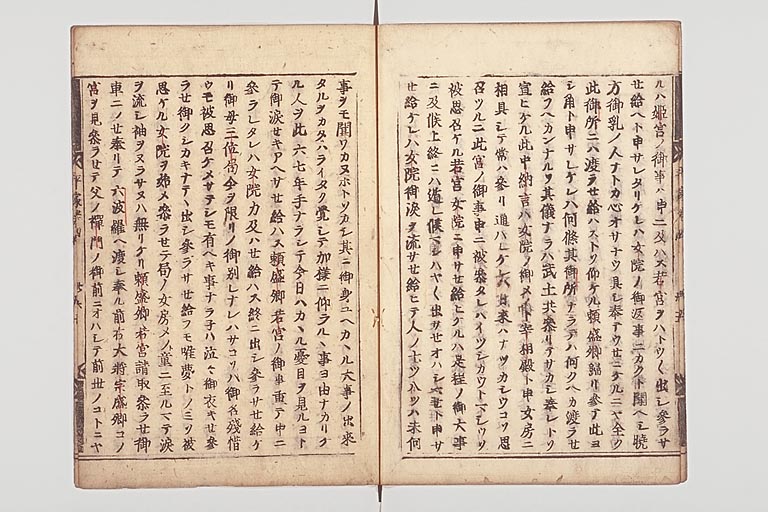 ルハ姫宮ノ御事ハ申ニ及ハス若宮ヲハトクヽヽ出シ参ラサ
セ給ヘト申サレタリケレハ女院ノ御返事ニカクト聞ヘシ暁
方御乳ノ人ナトカ心オサナク具シ奉テウセニケルニヤ全ク
此御所ニハ渡ラセ給ハストソ仰ケル頼盛卿歸リ参テ此ヨ
シ角ト申サレケレハ何條其御所ナラテハ何クヘカ渡ラセ
給フヘカンナルソ其儀ナラハ武士共参リテサカシ奉レトソ
宣ヒケル此中納言ハ女院ノ御メノト宰相殿ト申女房ニ
相具シテ常ハ参リ通ハレケレハ日来ハナツカシウコソ思
召ツルニ此宮ノ御事申ニ被参タレハイツシカウトマシウソ
被思召ケル若宮女院ニ申サセ給ヒケルハ是程ノ御大事
ニ及候上終ニハ遁レ候マシハヤヽ出サセオハシマセト申サ
セ給ケレハ女院御涙ヲ流サセ給ヒテ人ノ七ツハツハ未何
事ヲモ聞ワカヌホトソカシ其ニ御身ユヘカヽル大事ノ出来
タルヲカタハライタク覚シテ加様ニ仰ラルヽ事ヨ由ナカリケ
ル人ヲ此六七年手ナラシテ今日ハカヽル憂目ヲ見ルヨト
テ御涙セキアヘサセ給ハス頼盛卿若宮ノ御事重テ申ニ
参ラレタレハ女院力及ハセ給ハス終ニ出シ参ラサセ給ケ
リ御母三位局今ヲ限リノ御別レナレハサコソハ御名残惜
ウモ被思召ケメサテシモ有ヘキ事ナラ子ハ泣々御衣キセ参
ラセ御クシカキナテヽ出シ参ラサセ給フモ唯夢トノミソ被
思ケル女院ヲ始メ参ラセテ局ノ女房メノ童ニ至ルマテ涙
ヲ流シ袖ヲヌラサヌハ無リケリ頼盛卿若宮請取参ラセ御
車ニノセ奉リテ六波羅ヘ渡シ奉ル前右大将宗盛卿コノ
宮ヲ見参ラセテ父ノ禅門ノ御前ニオハシテ前世ノコトニヤ